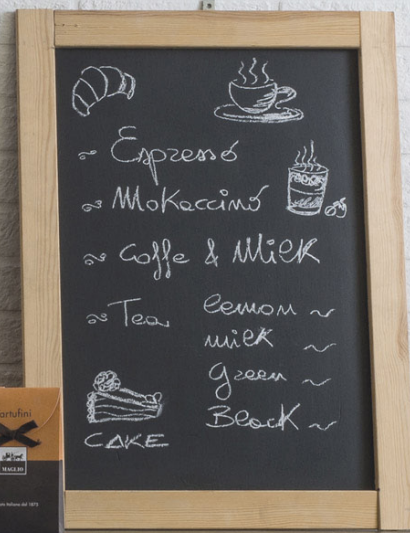 ~ Espressó
~ Mokaccinó
~ Coffe & Milk
~ Tea lemon ~
milk ~
green ~
Black ~
CAKE
artufini
MAGLIO